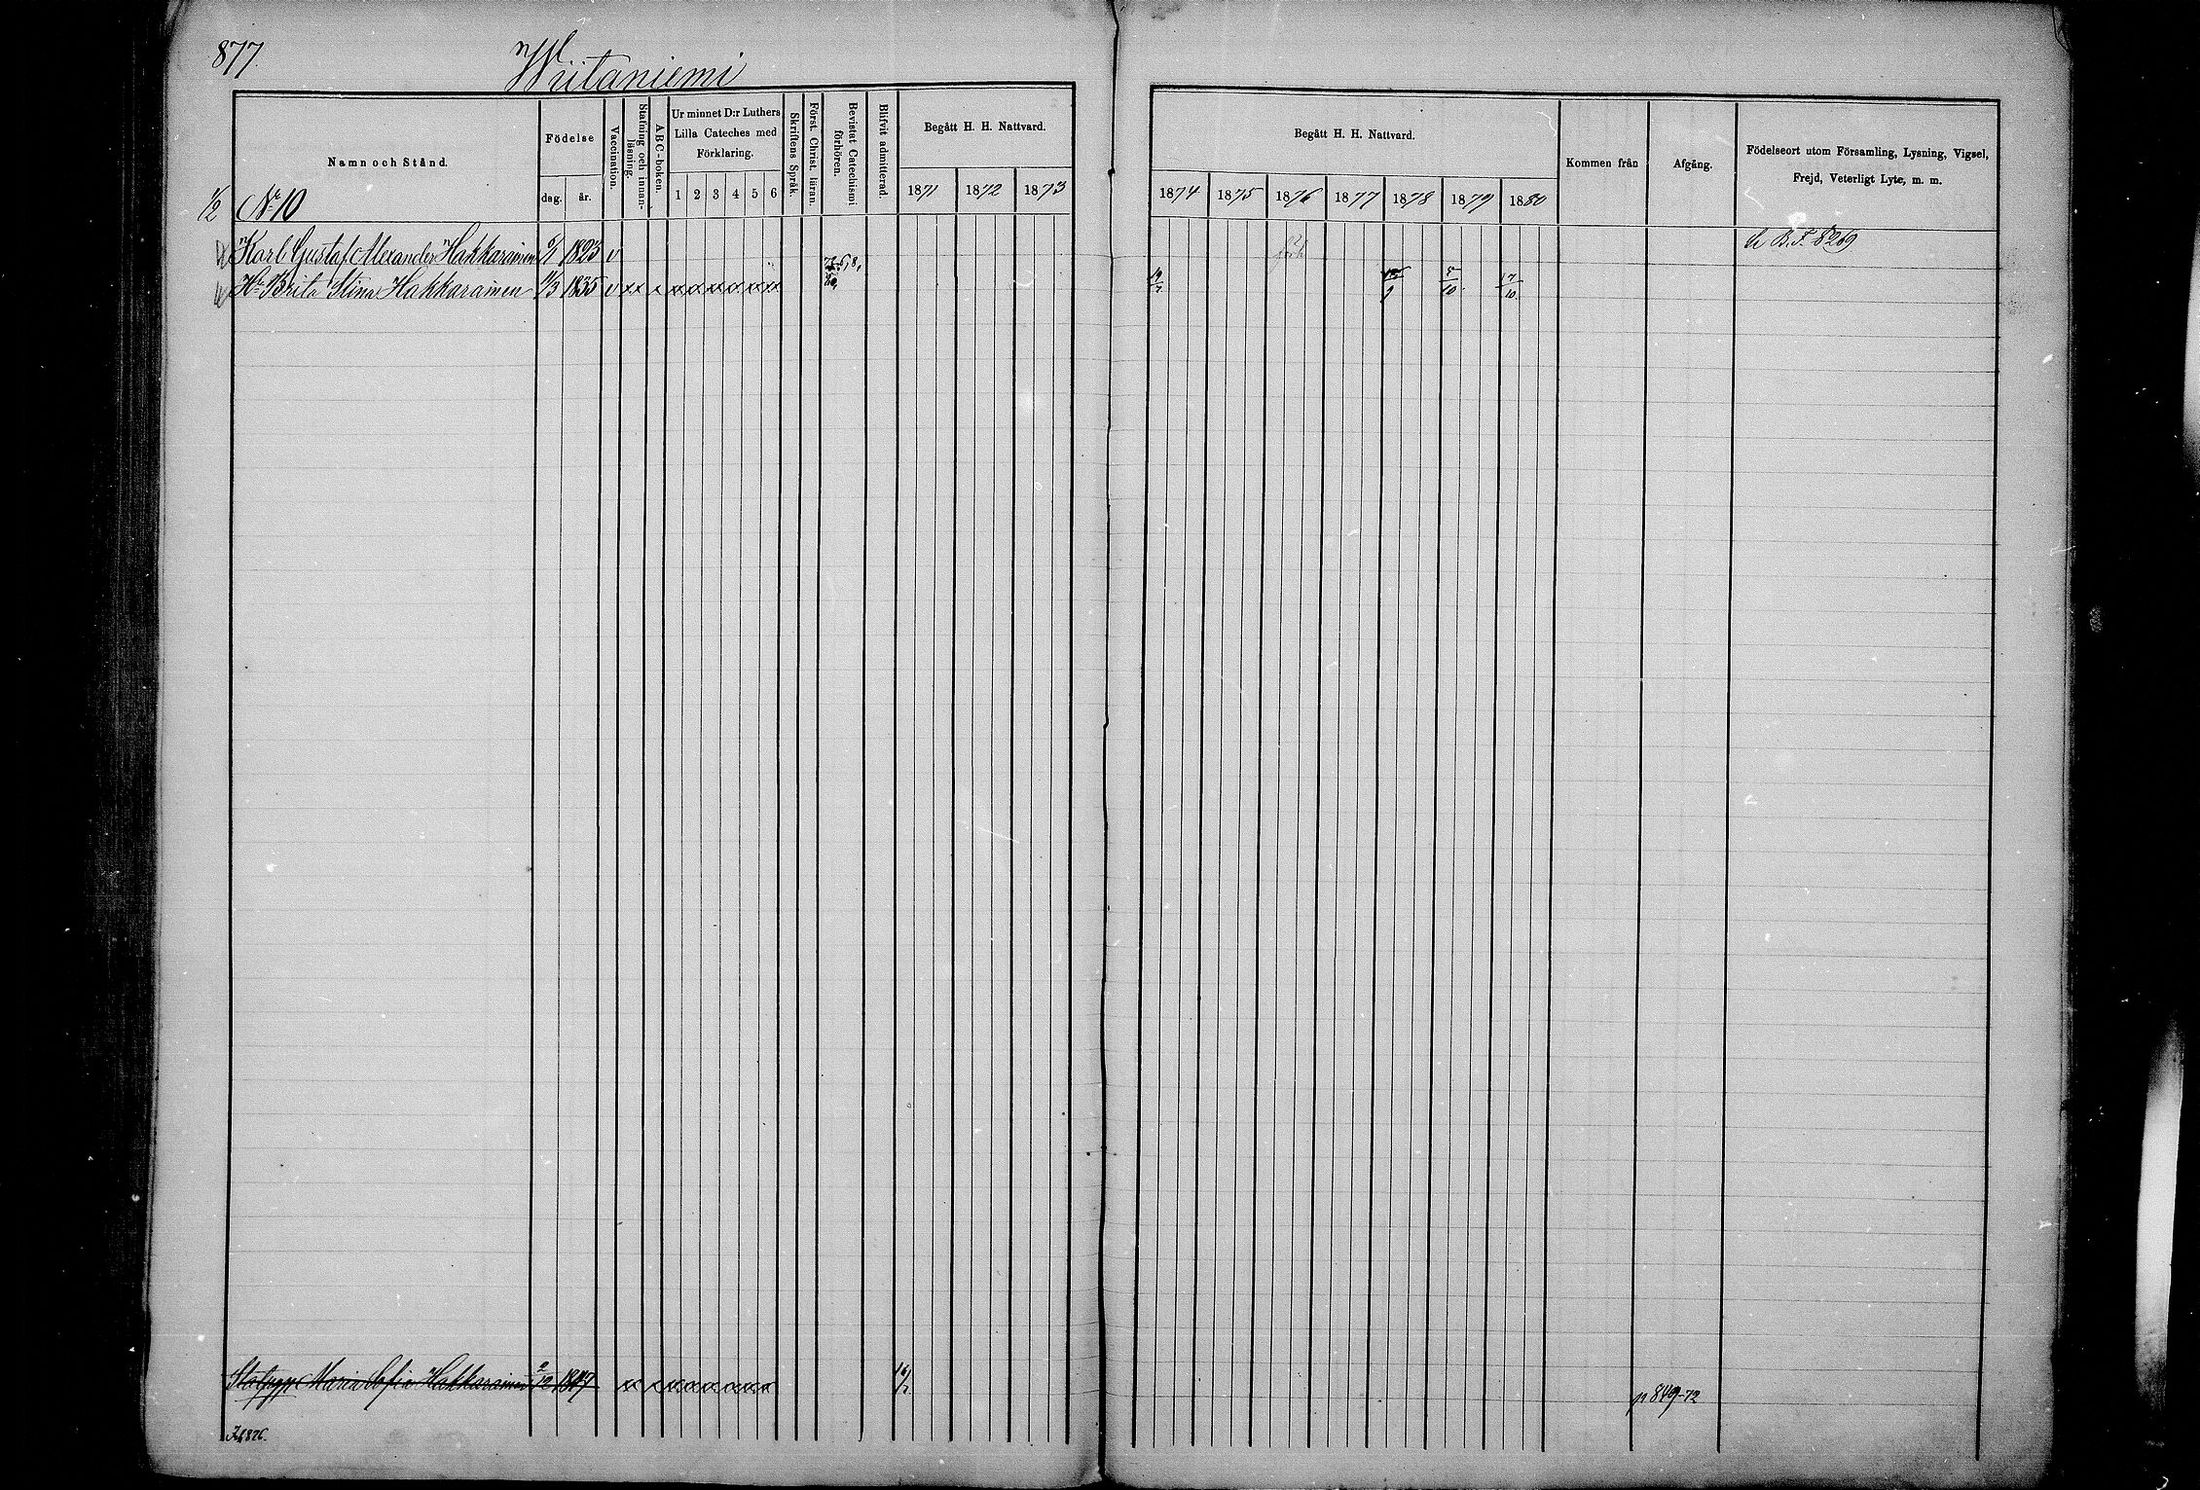 877
Wiitaniemi
Namn och Stånd.
Födelse
dag.
år.
Vaccination.
Stafning och innan-
läsning.
ABC-boken.
Ur minnet D:r Luthers
Lilla Cateches med
Förklaring.
1 2 3 4 5 6
Skriftens Språk.
Först. Christ. läran.
Bevistat Catechismi
förhören.
Blifvit admitterad.
Begått H. H. Nattvard.
1871 1872 1873
Begått H. H. Nattvard.
1874 1875 1876 1877 1878 1879 1880
Kommen från
Afgång.
Födelseort utom Församling, Lysning, Vigsel,
Frejd, Veterligt Lyte, m. m.
1/2 No 10
Karl Gustaf Alexander Hakkarainen 1823 v B. F. 8269
Hu Brita Stina Hakkarainen 1/3 1835 v xx x xx xx xx xx xx xx 5/10 17/10
Maria Sofia Hakkarainen 2/12 1847 p 849-72